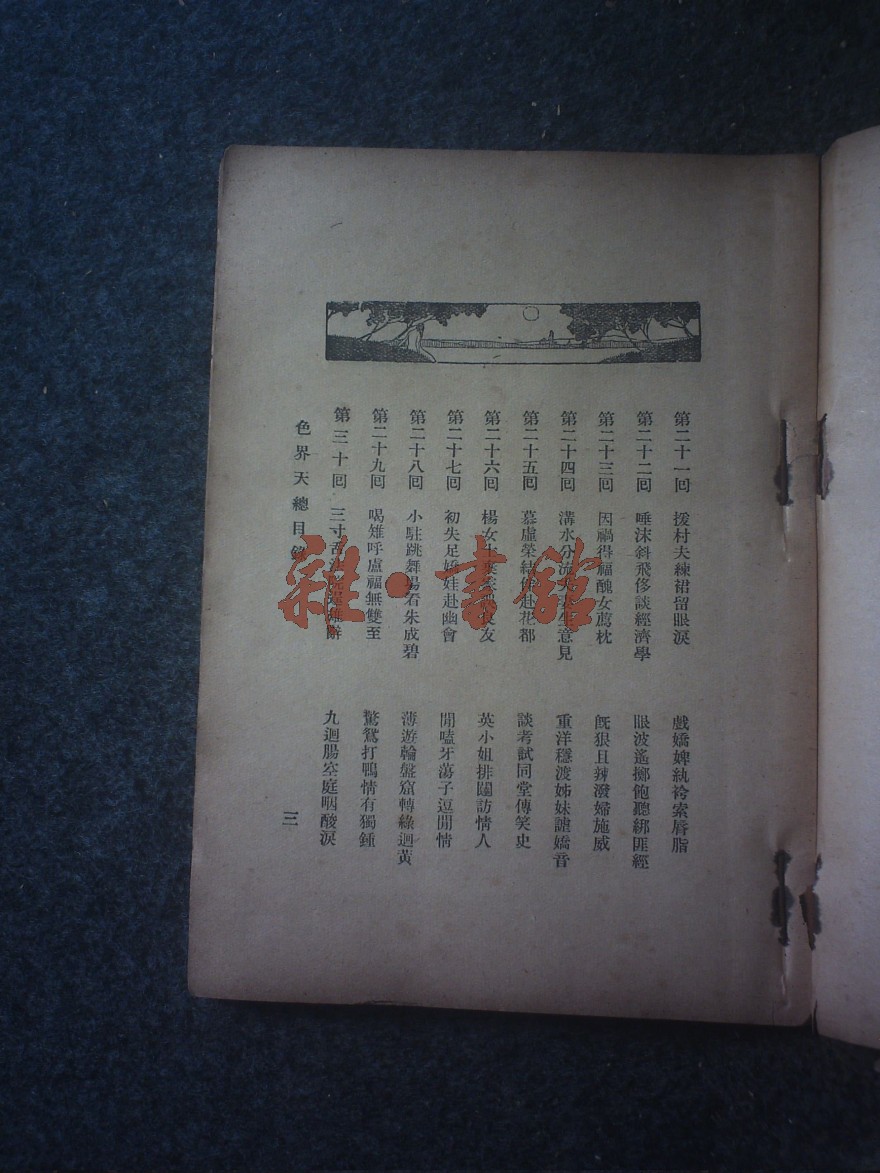 第二十一回　援村夫練裙留眼淚　戲嬌婢紈袴索唇脂
第二十二回　唾沫斜飛侈談經濟學　眼波遙擲飽聽綁匪經
第二十三回　因禍得福醜女薦枕　既狠且辣潑婦施威
第二十四回　溝水分流　生意見　重洋穩渡姊妹謔嬌音
第二十五回　慕虛榮結伴赴花都　談考試同堂傳笑史
第二十六回　楊女士　友　英小姐排闥訪情人
第二十七回　初失足嬌娃赴幽會　閒嗑牙蕩子逗閒情
第二十八回　小駐跳舞場看朱成碧　薄遊輪盤窟轉綠迴黃
第二十九回　喝雉呼盧福無雙至　驚鴛打鴨情有獨鍾
第三十回　三寸舌　九迴腸空庭咽酸淚
色界天總目錄　三
雜·書館